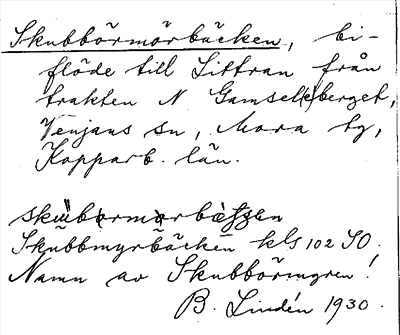 Skubbörmörbäcken, bi-
flöde till Littran från
trakten N Gamselkberget,
Venjans sn, Mora tg,
Kopparb. län.
Skubbmyrbäcken kls 102 SO.
Namn av Skubbörmyren!
B. Lindén 1930.